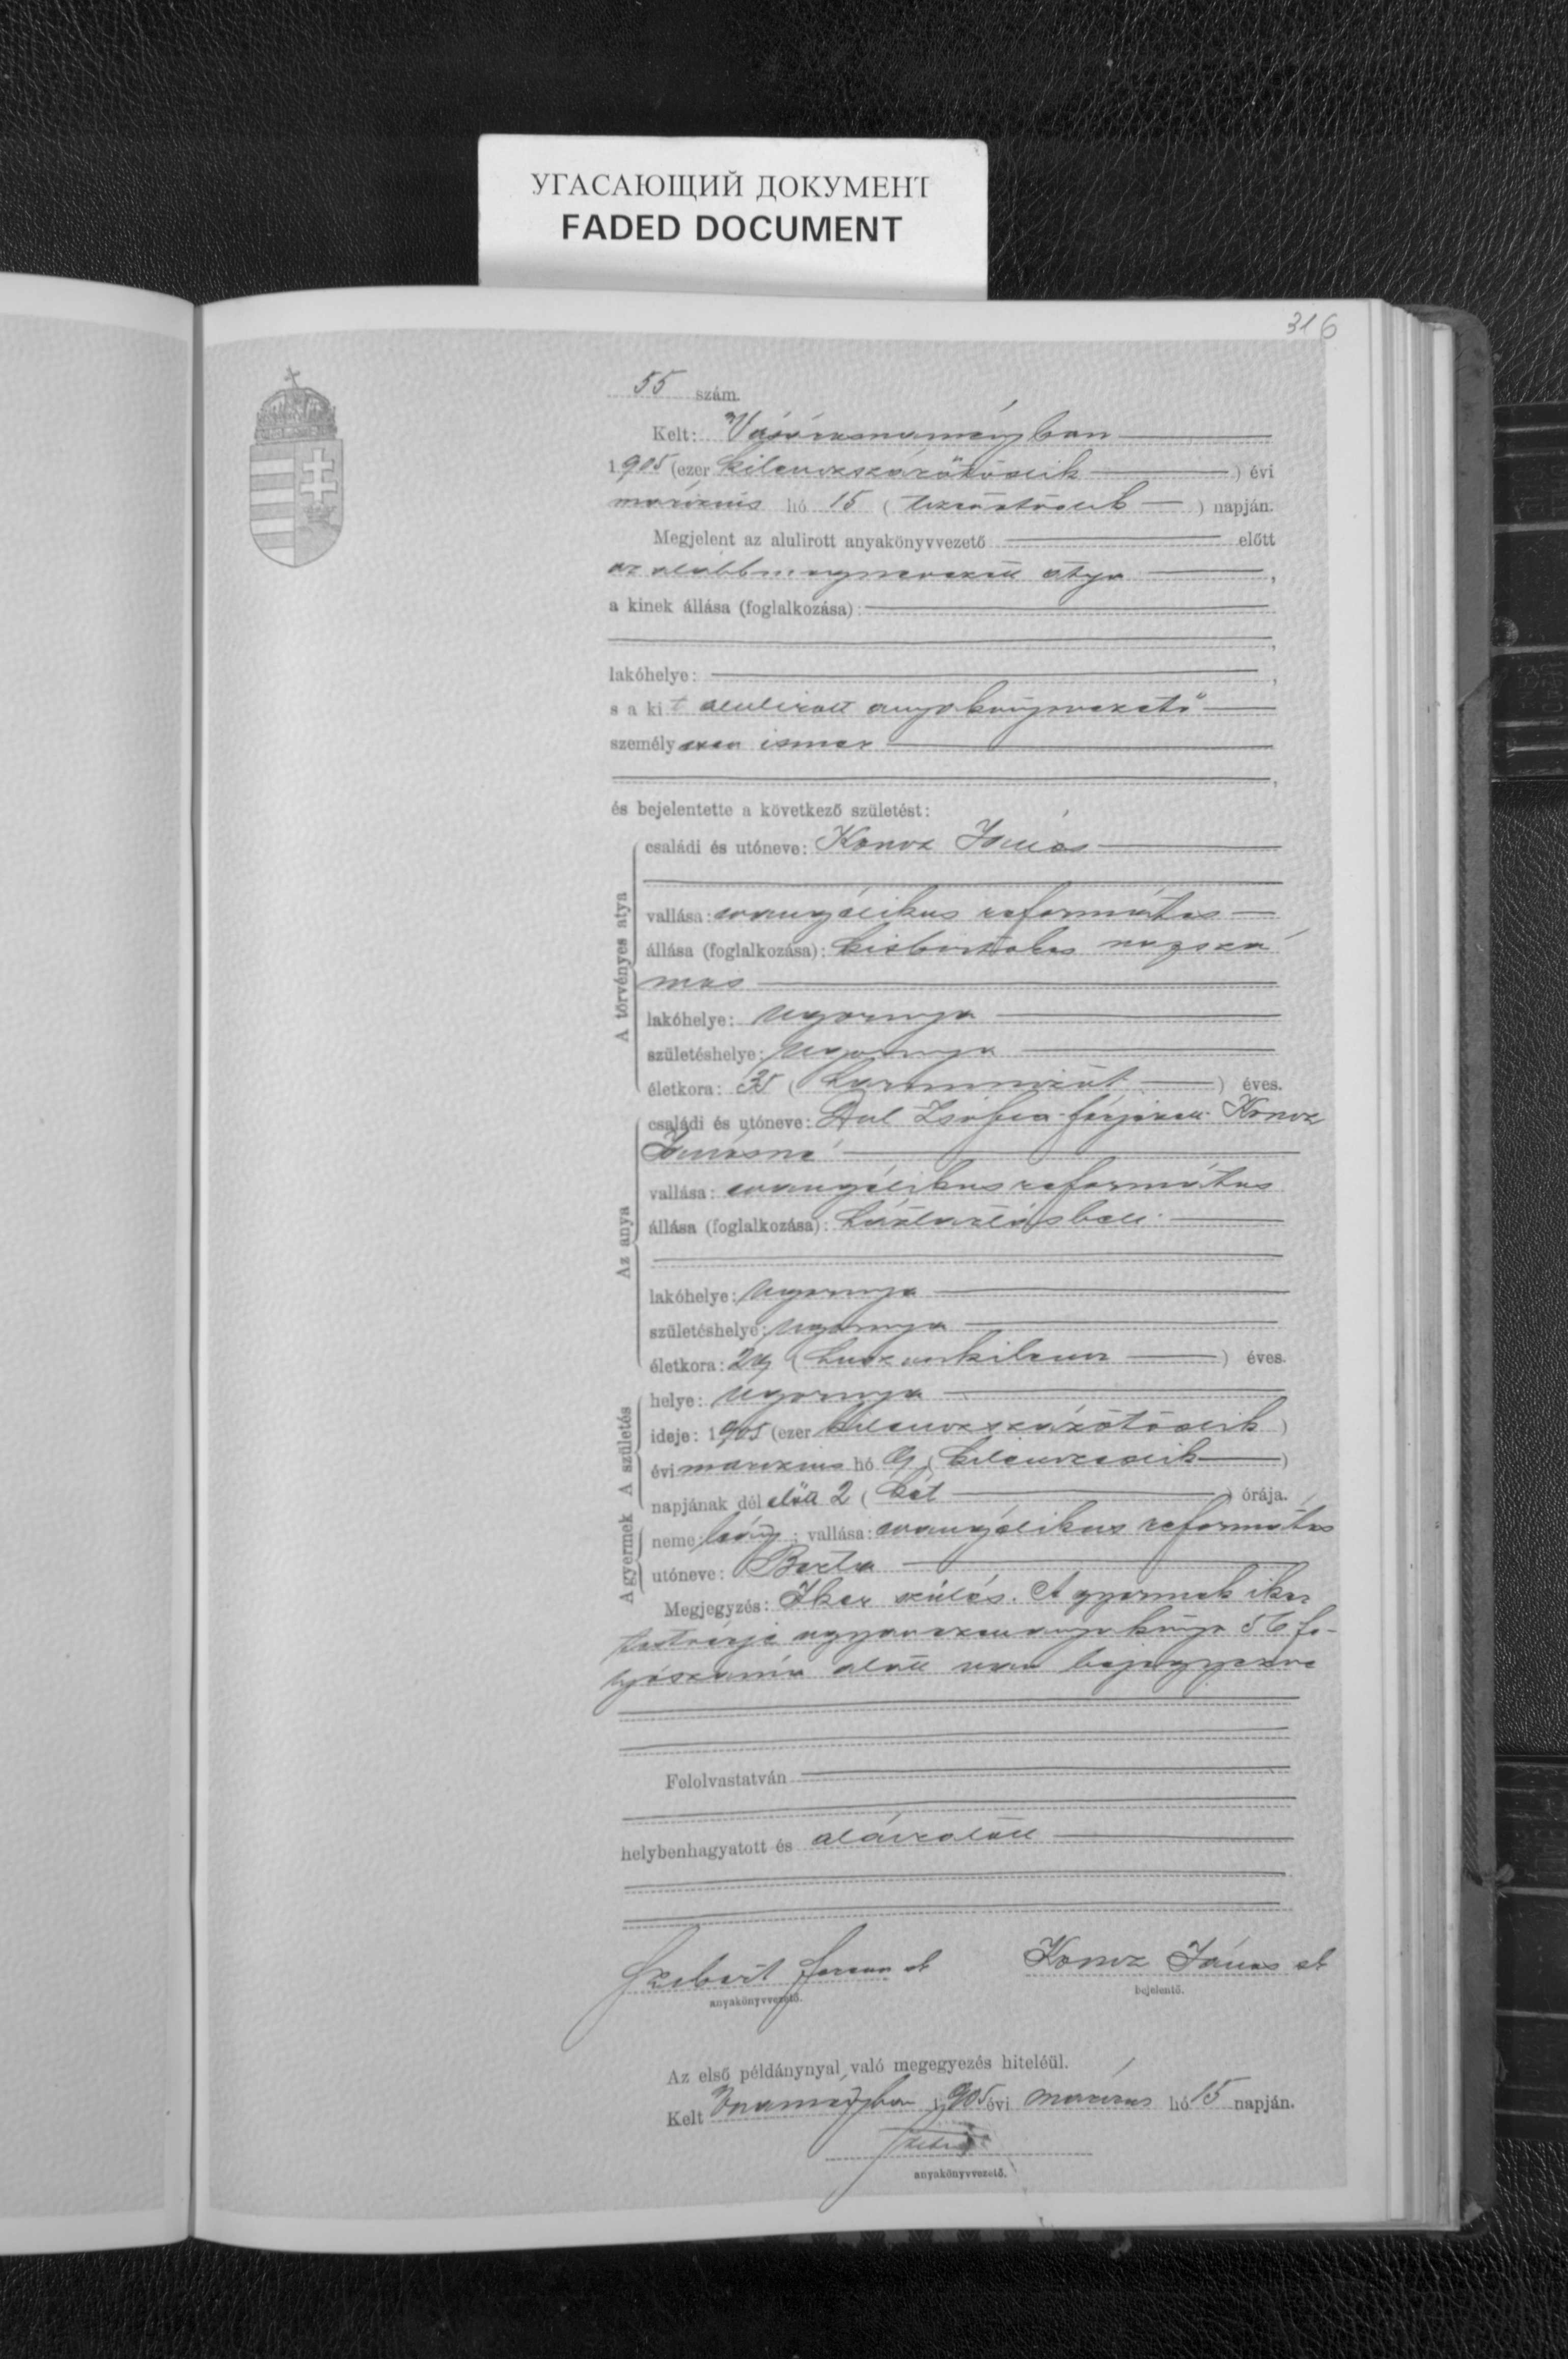 УГАСАЮЩИЙ ДОКУМЕНТ
FADED DOCUMENT
316
55 szám.
Kelt: Vásárosnaményban
1905 (ezer kilenczszázötödik) évi
márczius hó 15 (tizenötödik) napján.
Megjelent az alulirott anyakönyvvezető előtt
az alább megnevezett atya,
a kinek állása (foglalkozása):
lakóhelye:
s a kit alulirott anyakönyvvezető
személyesen ismer
és bejelentette a következő születést:
A törvényes atya
családi és utóneve: Koncz János
vallása: evangélikus református
állása (foglalkozása): kisbirtokos napszá
mos
lakóhelye: Ugornya
születéshelye: Ugornya
életkora: 35 (harminczöt) éves.
Az anya
családi és utóneve: Zsófia férjezett Koncz
Jánosné
vallása: evangélikus református
állása (foglalkozása): háztartásbeli
lakóhelye: Ugornya
születéshelye: Ugornya
életkora: 29 (huszonkilencz) éves.
A születés
helye: Ugornya
ideje: 1905 (ezer kilenczszázötödik)
évi márczius hó 9 (kilenczedik)
napjának dél előtt 2 (két) órája.
A gyermek
neme: leány; vallása: evangélikus református
utóneve: Berta
Megjegyzés: Iker szülés. A gyermek iker
testvérje ugyanezen anyakönyv 56 fo-
lyószáma alatt van bejegyezve
Felolvastatván
helybenhagyatott és aláíratott
Ferencz sk
anyakönyvvezető.
Koncz János sk
bejelentő.
Az első példánynyal való megegyezés hiteléül.
Kelt Vnaményban 1905 évi márczius hó 15 napján.
anyakönyvvezető.